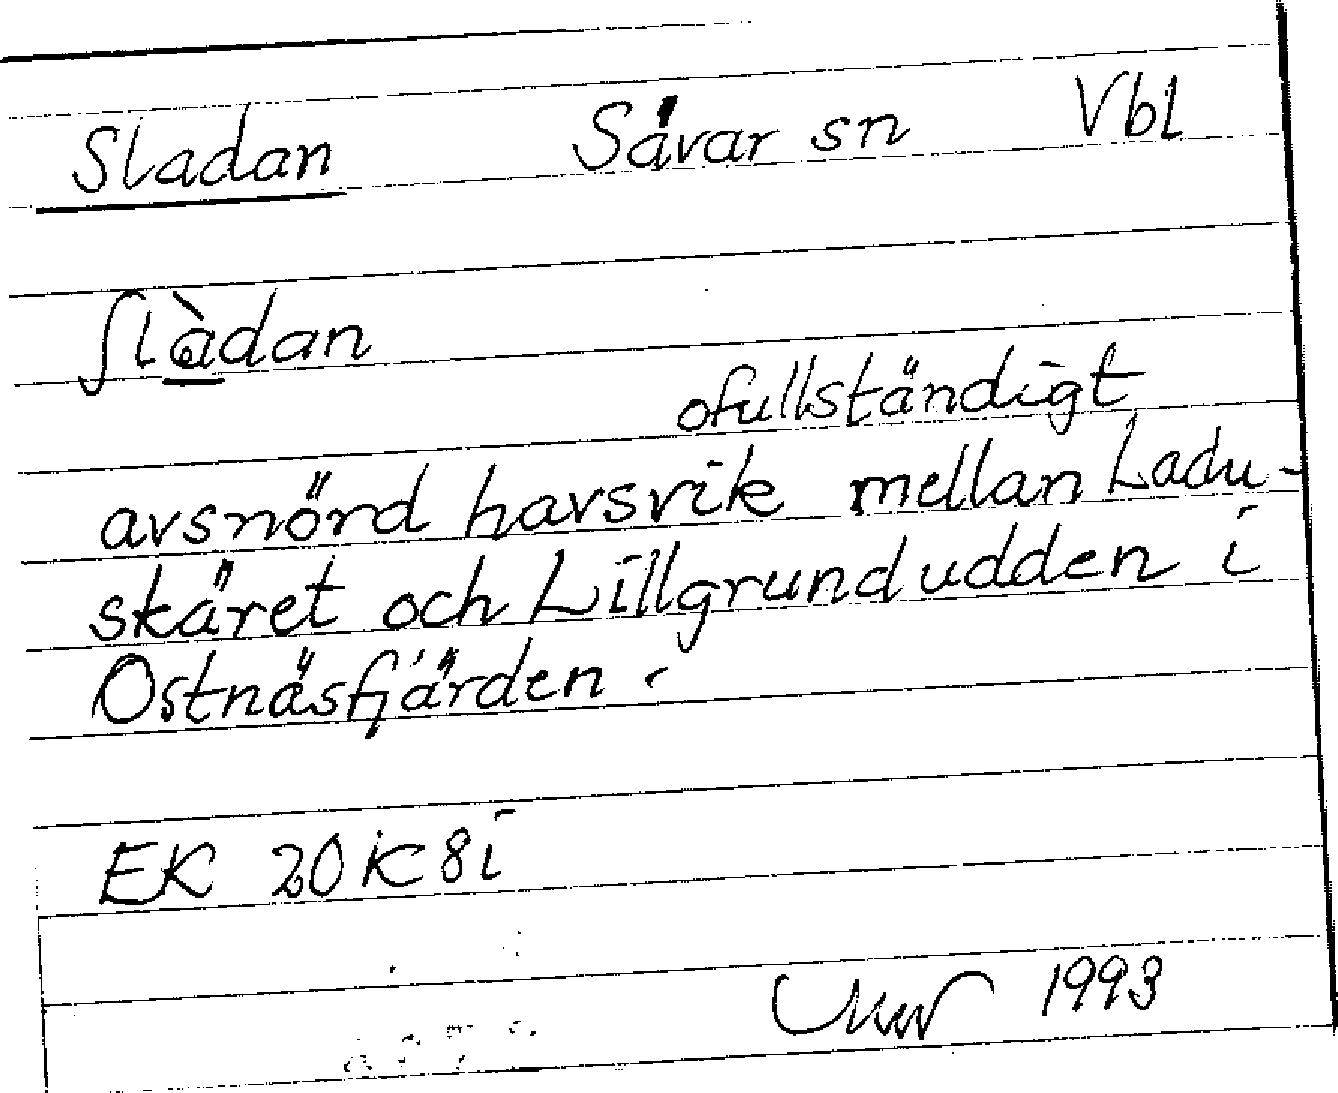 Sladan Sävar sn Vbl
ʃlàdan
ofullständigt
avsnörd havsvik mellan Ladu-
skäret och Lillgrundudden i
Ostnäsfjärden.
EK 20K 8i
1993